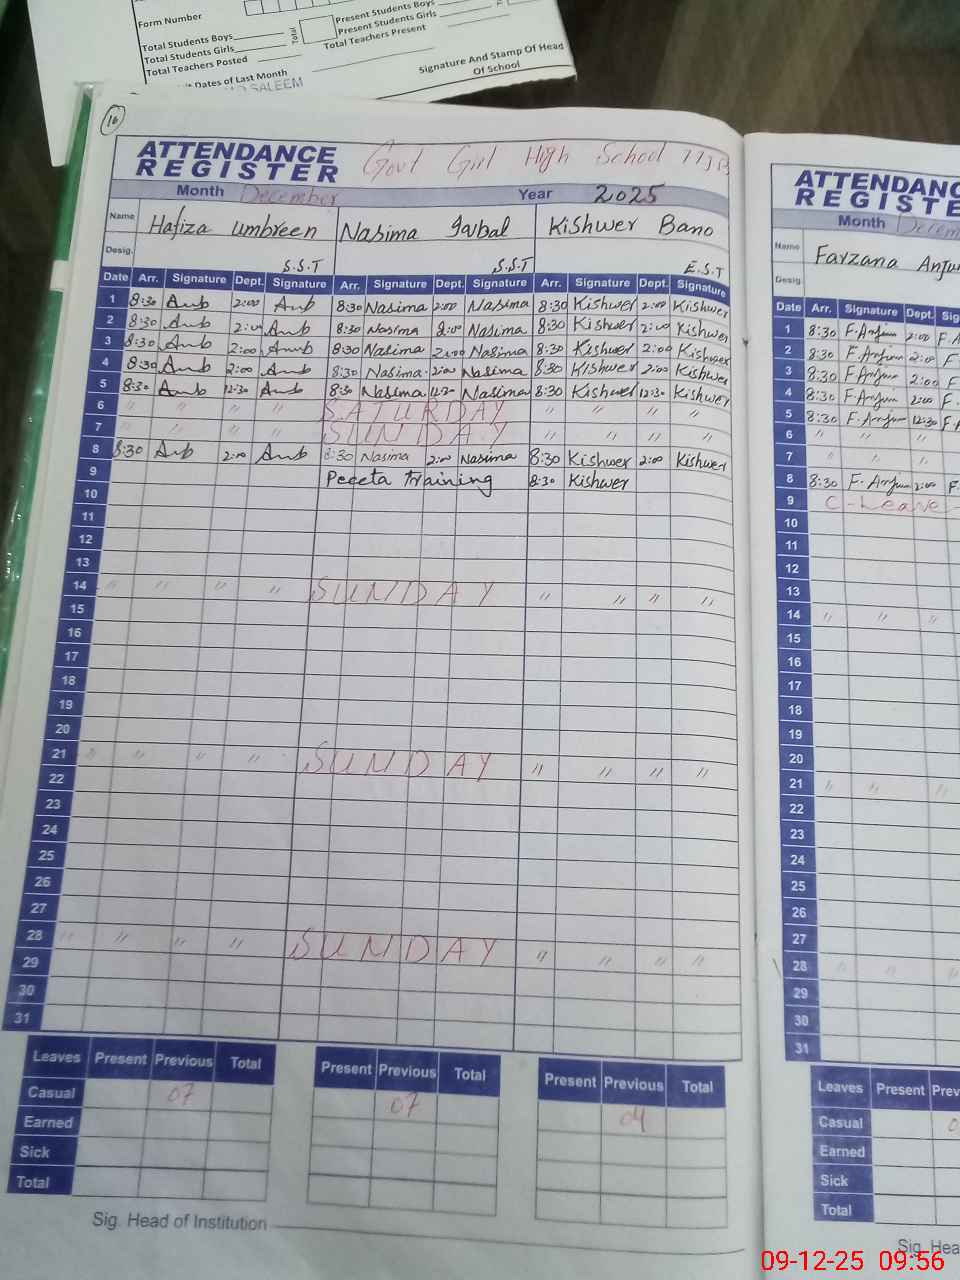 Form Number
Total Students Boys
Total Students Girls
Total Teachers Posted
Total
Present Students Boys
Present Students Girls
Total Teachers Present
Dates of Last Month
SALEEM
Signature And Stamp Of Head
Of School
16
ATTENDANCE REGISTER Govt Girl High School 77JB
Month December Year 2025
Name Hafiza umbreen Nasima Iqbal Kishwer Bano
Desig. S.S.T S.S.T E.S.T
Date Arr. Signature Dept. Signature Arr. Signature Dept. Signature Arr. Signature Dept. Signature
1 8:30 Amb 2:00 Amb 8:30 Nasima 2:00 Nasima 8:30 Kishwer 2:00 Kishwer
2 8:30 Amb 2:00 Amb 8:30 Nasima 2:00 Nasima 8:30 Kishwer 2:00 Kishwer
3 8:30 Amb 2:00 Amb 8:30 Nasima 2:00 Nasima 8:30 Kishwer 2:00 Kishwer
4 8:30 Amb 2:00 Amb 8:30 Nasima 2:00 Nasima 8:30 Kishwer 2:00 Kishwer
5 8:30 Amb 12:30 Amb 8:30 Nasima 12:30 Nasima 8:30 Kishwer 12:30 Kishwer
6 " " " " SATURDAY " " " "
7 " " " " SUNDAY " " " "
8 8:30 Amb 2:00 Amb 8:30 Nasima 2:00 Nasima 8:30 Kishwer 2:00 Kishwer
9 Peceta Training 8:30 Kishwer
10
11
12
13
14 " " " " SUNDAY " " " "
15
16
17
18
19
20
21 " " " " SUNDAY " " " "
22
23
24
25
26
27
28 " " " " SUNDAY " " " "
29
30
31
Leaves Present Previous Total Present Previous Total Present Previous Total
Casual 07 07 04
Earned
Sick
Total
Sig. Head of Institution
ATTENDANC
REGISTE
Month Decem
Name Farzana Anju
Desig
Date Arr. Signature Dept. Sig
1 8:30 F.Anjum 2:00 F.A
2 8:30 F.Anjum 2:00 F
3 8:30 F.Anjum 2:00 F.
4 8:30 F.Anjum 2:00 F.
5 8:30 F.Anjum 12:30 F.
6 " " "
7 " " "
8 8:30 F.Anjum 2:00 F.
9 C-Leave-
10
11
12
13
14 " " "
15
16
17
18
19
20
21 " " "
22
23
24
25
26
27
28 " " "
29
30
31
Leaves Present Prev
Casual
Earned
Sick
Total
Sig. Hea
09-12-25 09:56